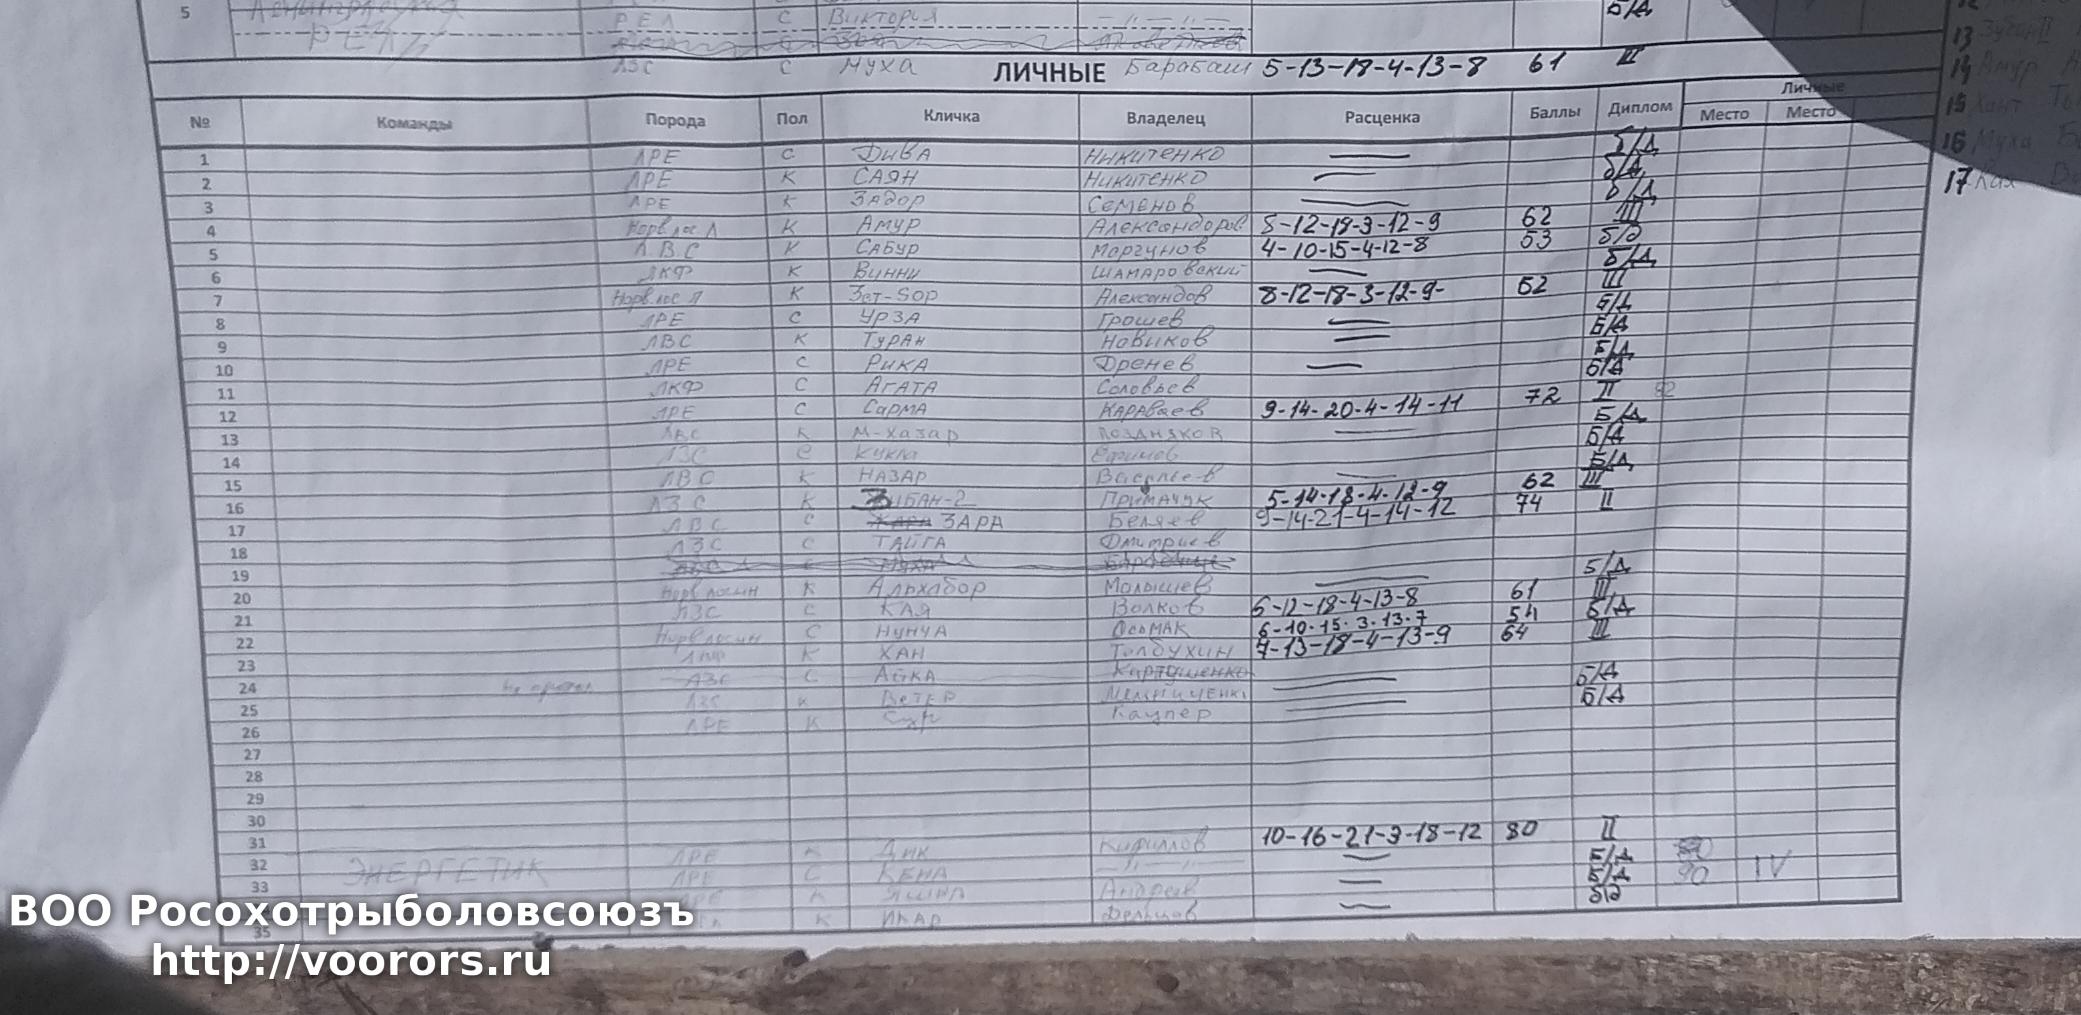 5 Ленинградская РЕЛ С Виктория —"—"—
РЕЛ Б/Д
ЛЗС С Муха ЛИЧНЫЕ Барабаш 5-13-18-4-13-8 61 III
№ Команды Порода Пол Кличка Владелец Расценка Баллы Диплом Личные
Место Место
1 ЛРЕ С ДИВА НИКИТЕНКО — Б/Д
2 ЛРЕ К САЯН НИКИТЕНКО — Б/Д
3 ЛРЕ К ЗАДОР СЕМЕНОВ — Б/Д
4 Норв лос Л К Амур Александров 8-12-19-3-12-9 62 III
5 Л.В.С К САБУР Моргунов 4-10-15-4-12-8 53 б/д
6 ЛКФ К Винни ШАМАРОВский — Б/Д
7 Норв.лос Л К Зет-Бор Александов 8-12-18-3-12-9- 62 III
8 ЛРЕ С УРЗА Грошев — Б/Д
9 ЛВС К ТУРАН Новиков — Б/Д
10 ЛРЕ С РИКА Дренев — Б/Д
11 ЛКФ С АГАТА Соловьев Б/Д
12 ЛРЕ С САРМА КАРАВАев 9-14-20-4-14-11 72 II
13 ЛВС К М-хазар ПОЗДНЯКОВ — Б/Д
14 ЛЗС С Кукла Ефимов Б/Д
15 ЛВС К НАЗАР Васильев — Б/Д
16 ЛЗС К Примачук 5-14-18-4-12-9 62 III
17 ЛВС С ЗАРА Беляев 9-14-21-4-14-12 74 II
18 ЛЗС С ТАЙГА Дмитриев
19 С МУХА
20 Норв лосин К Альхабор Малышев — Б/Д
21 ЛЗС С КАЯ Волков 6-12-18-4-13-8 61 III
22 Норв лосин С НУНЧА ОсьМАК 6-10-15-3-13-7 54 Б/Д
23 К ХАН Толбухин 7-13-18-4-13-9 64 III
24 ЛЗС С АЙКА Картушенко
25 ЛЗС К ВЕТЕР МЕЛЬНИЧЕНКО — Б/Д
26 ЛРЕ К Каупер — Б/Д
27
28
29
30
31
32 ЭНЕРГЕТИК ЛРЕ К ДИК Кириллов 10-16-21-3-18-12 80 II
33 ЛРЕ С ВЕНА —"—"— — Б/Д
К Андреев — Б/Д 90 IV
35 К ИКАР — б/д
13
14 Амур
15 Хант
16 Муха
17
ВОО Росохотрыболовсоюзъ
http://voorors.ru